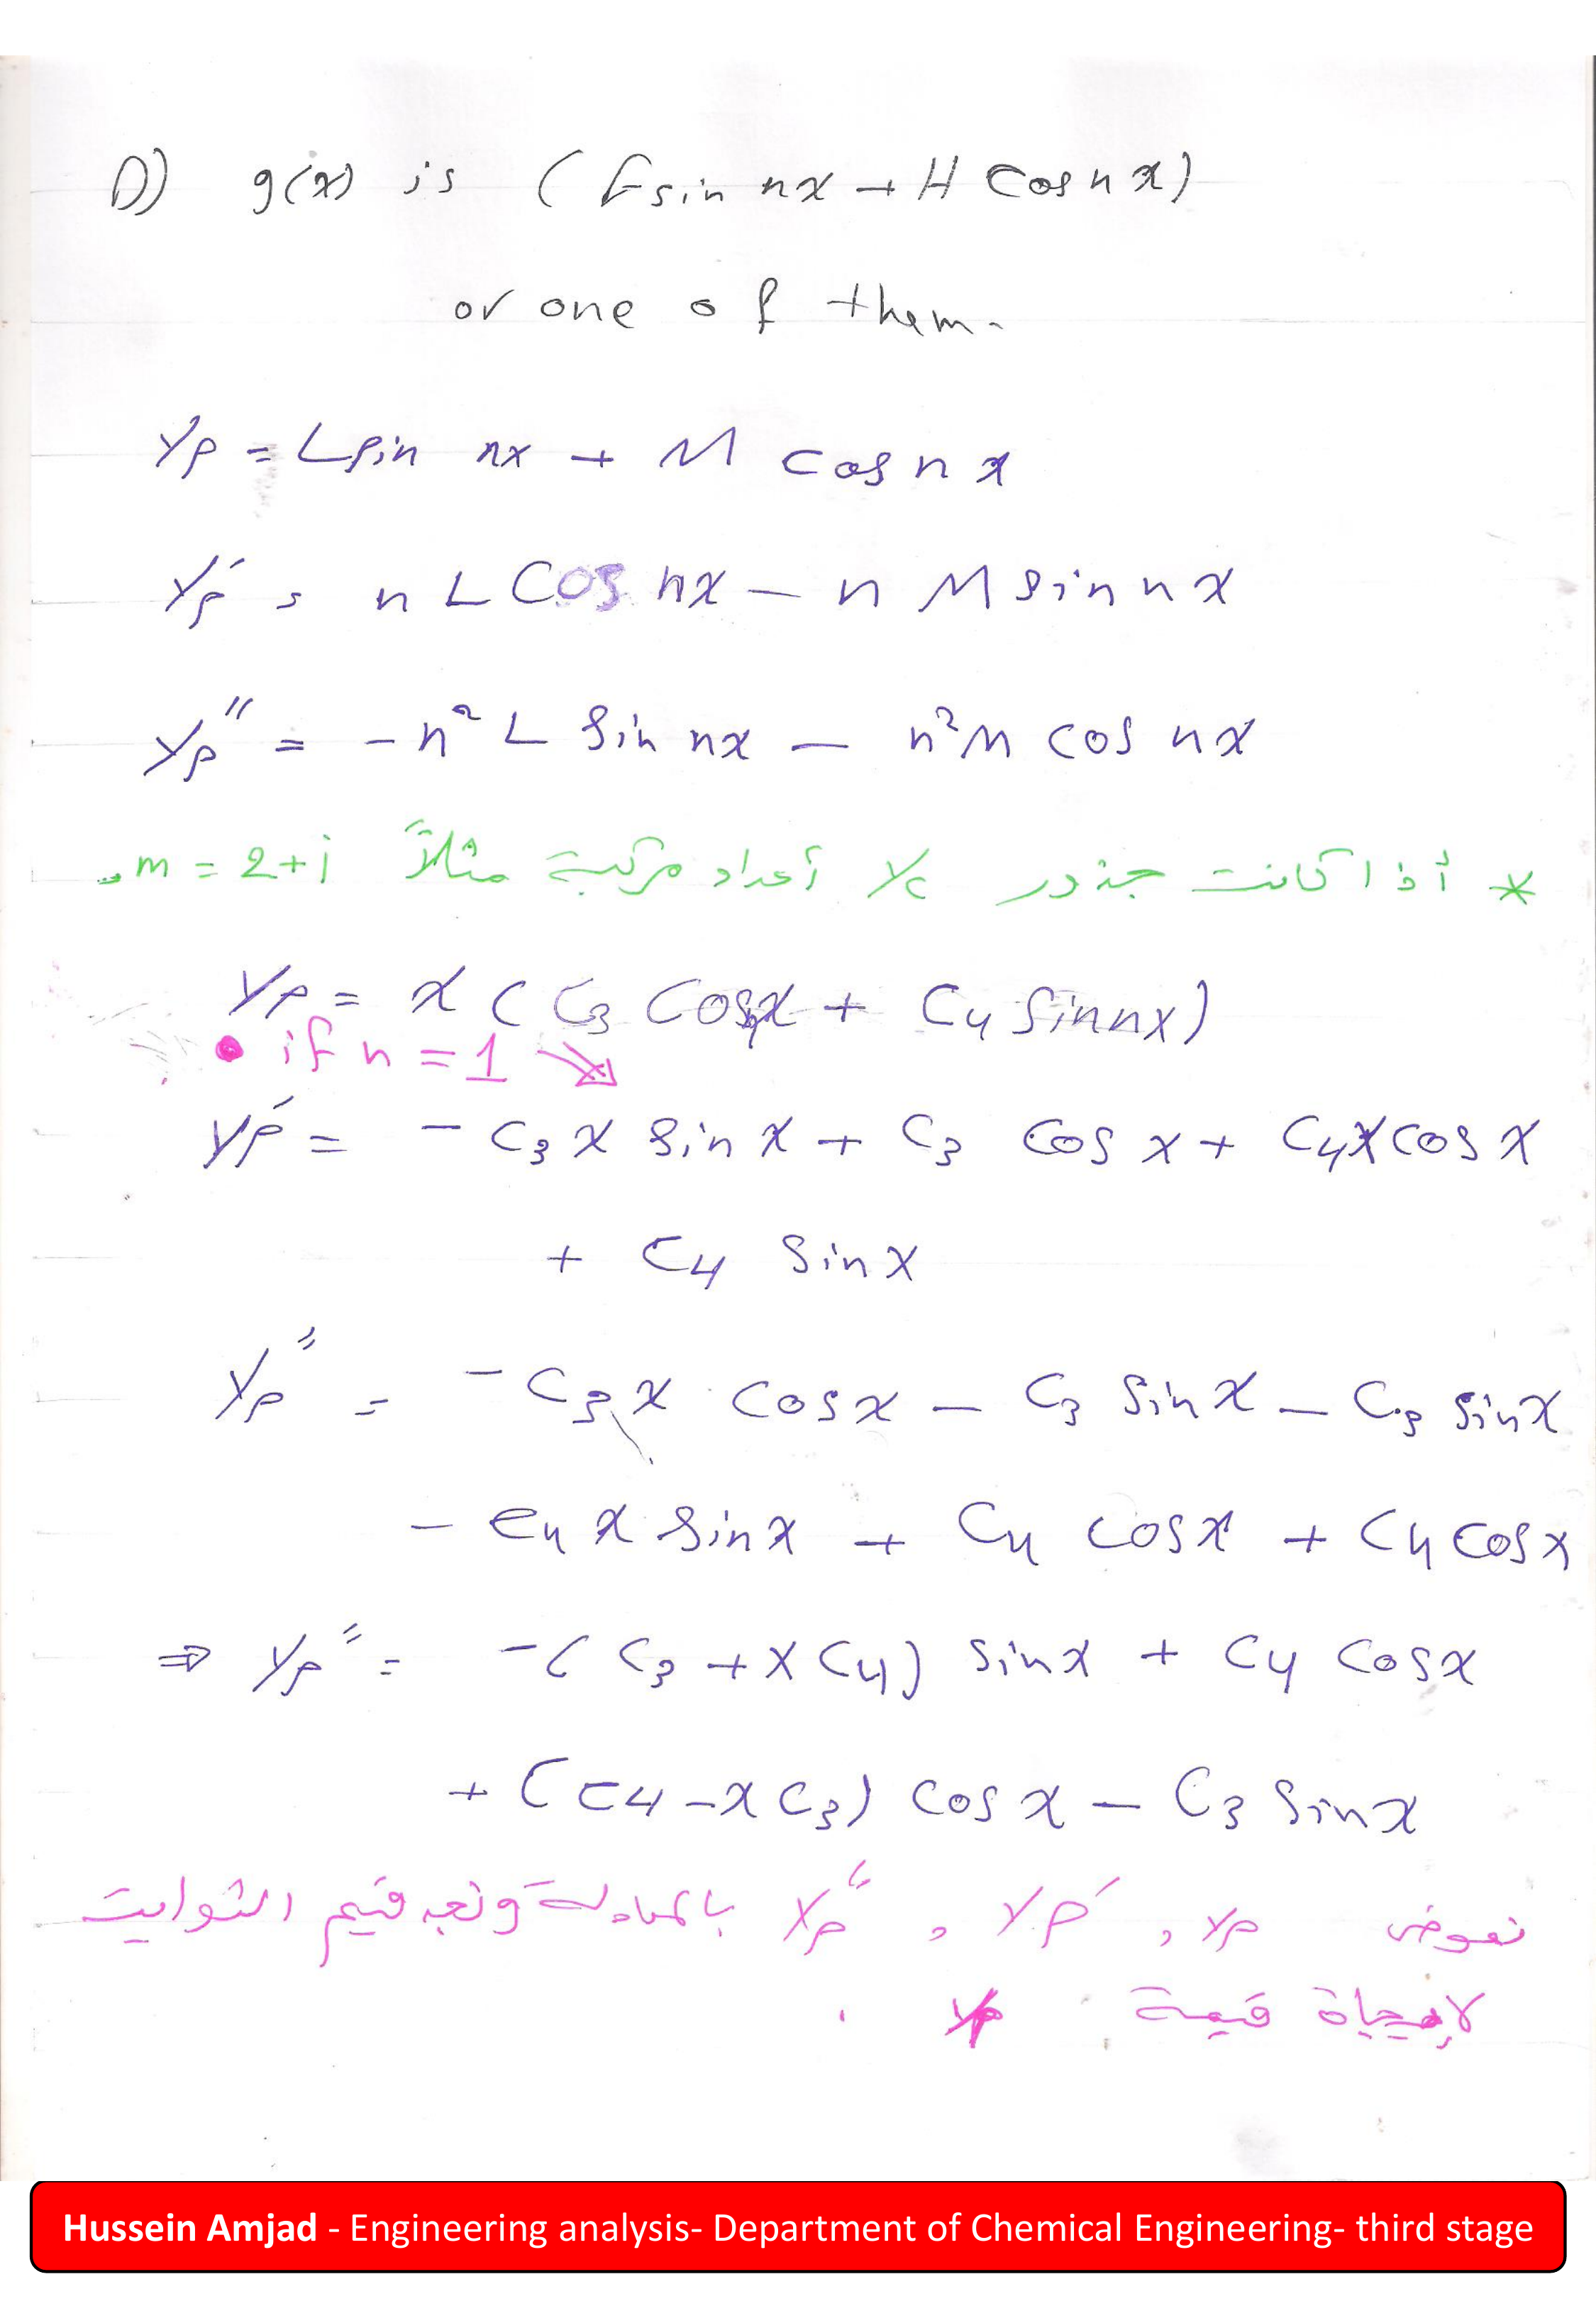 D) g(x) is (F sin nx + H cos nx)
or one of them.
yp = L sin nx + M cos nx
yp' = n L cos nx - n M sin nx
yp" = - n² L sin nx - n² M cos nx
* أذا كانت جذور yc أعداد مركبة مثلاً m = 2+i
yp = x ( C3 cos nx + C4 sin nx)
• if n = 1
yp' = - C3 x sin x + C3 cos x + C4 x cos x
+ C4 sin x
yp" = - C3 x cos x - C3 sin x - C3 sin x
- C4 x sin x + C4 cos x + C4 cos x
⇒ yp" = - ( C3 + x C4) sin x + C4 cos x
+ (C4 - x C3) cos x - C3 sin x
نعوض yp , yp' , yp" بالمعادلة ونجد قيم الثوابت
لإيجاد قيمة yp .
Hussein Amjad - Engineering analysis- Department of Chemical Engineering- third stage